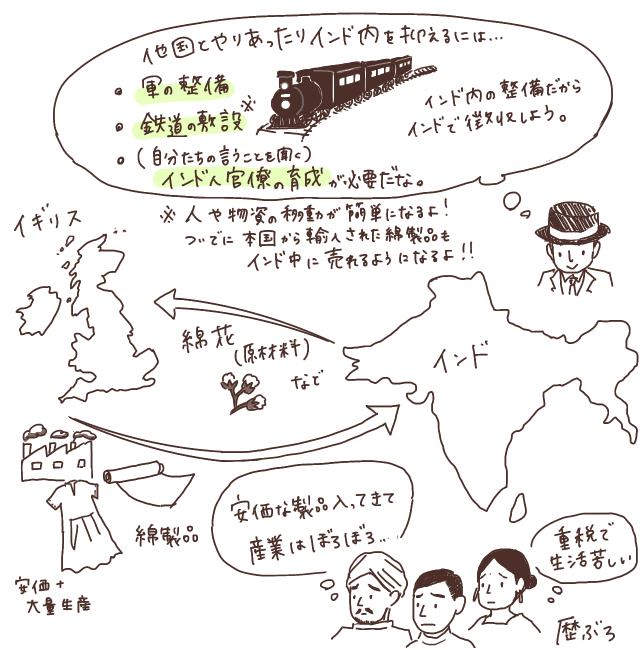 他国とやりあったりインド内を抑えるには…
・軍の整備
・鉄道の敷設※
・(自分たちの言うことを聞く)
インド人官僚の育成が必要だな。
インド内の整備だから
インドで徴収しよう。
※人や物資の移動が簡単になるよ!
ついでに本国から輸入された綿製品も
インド中に売れるようになるよ!!
イギリス
綿花
(原材料)
など
インド
綿製品
安価+
大量生産
安価な製品入ってきて
産業はぼろぼろ…
重税で
生活苦しい
歴ぶろ